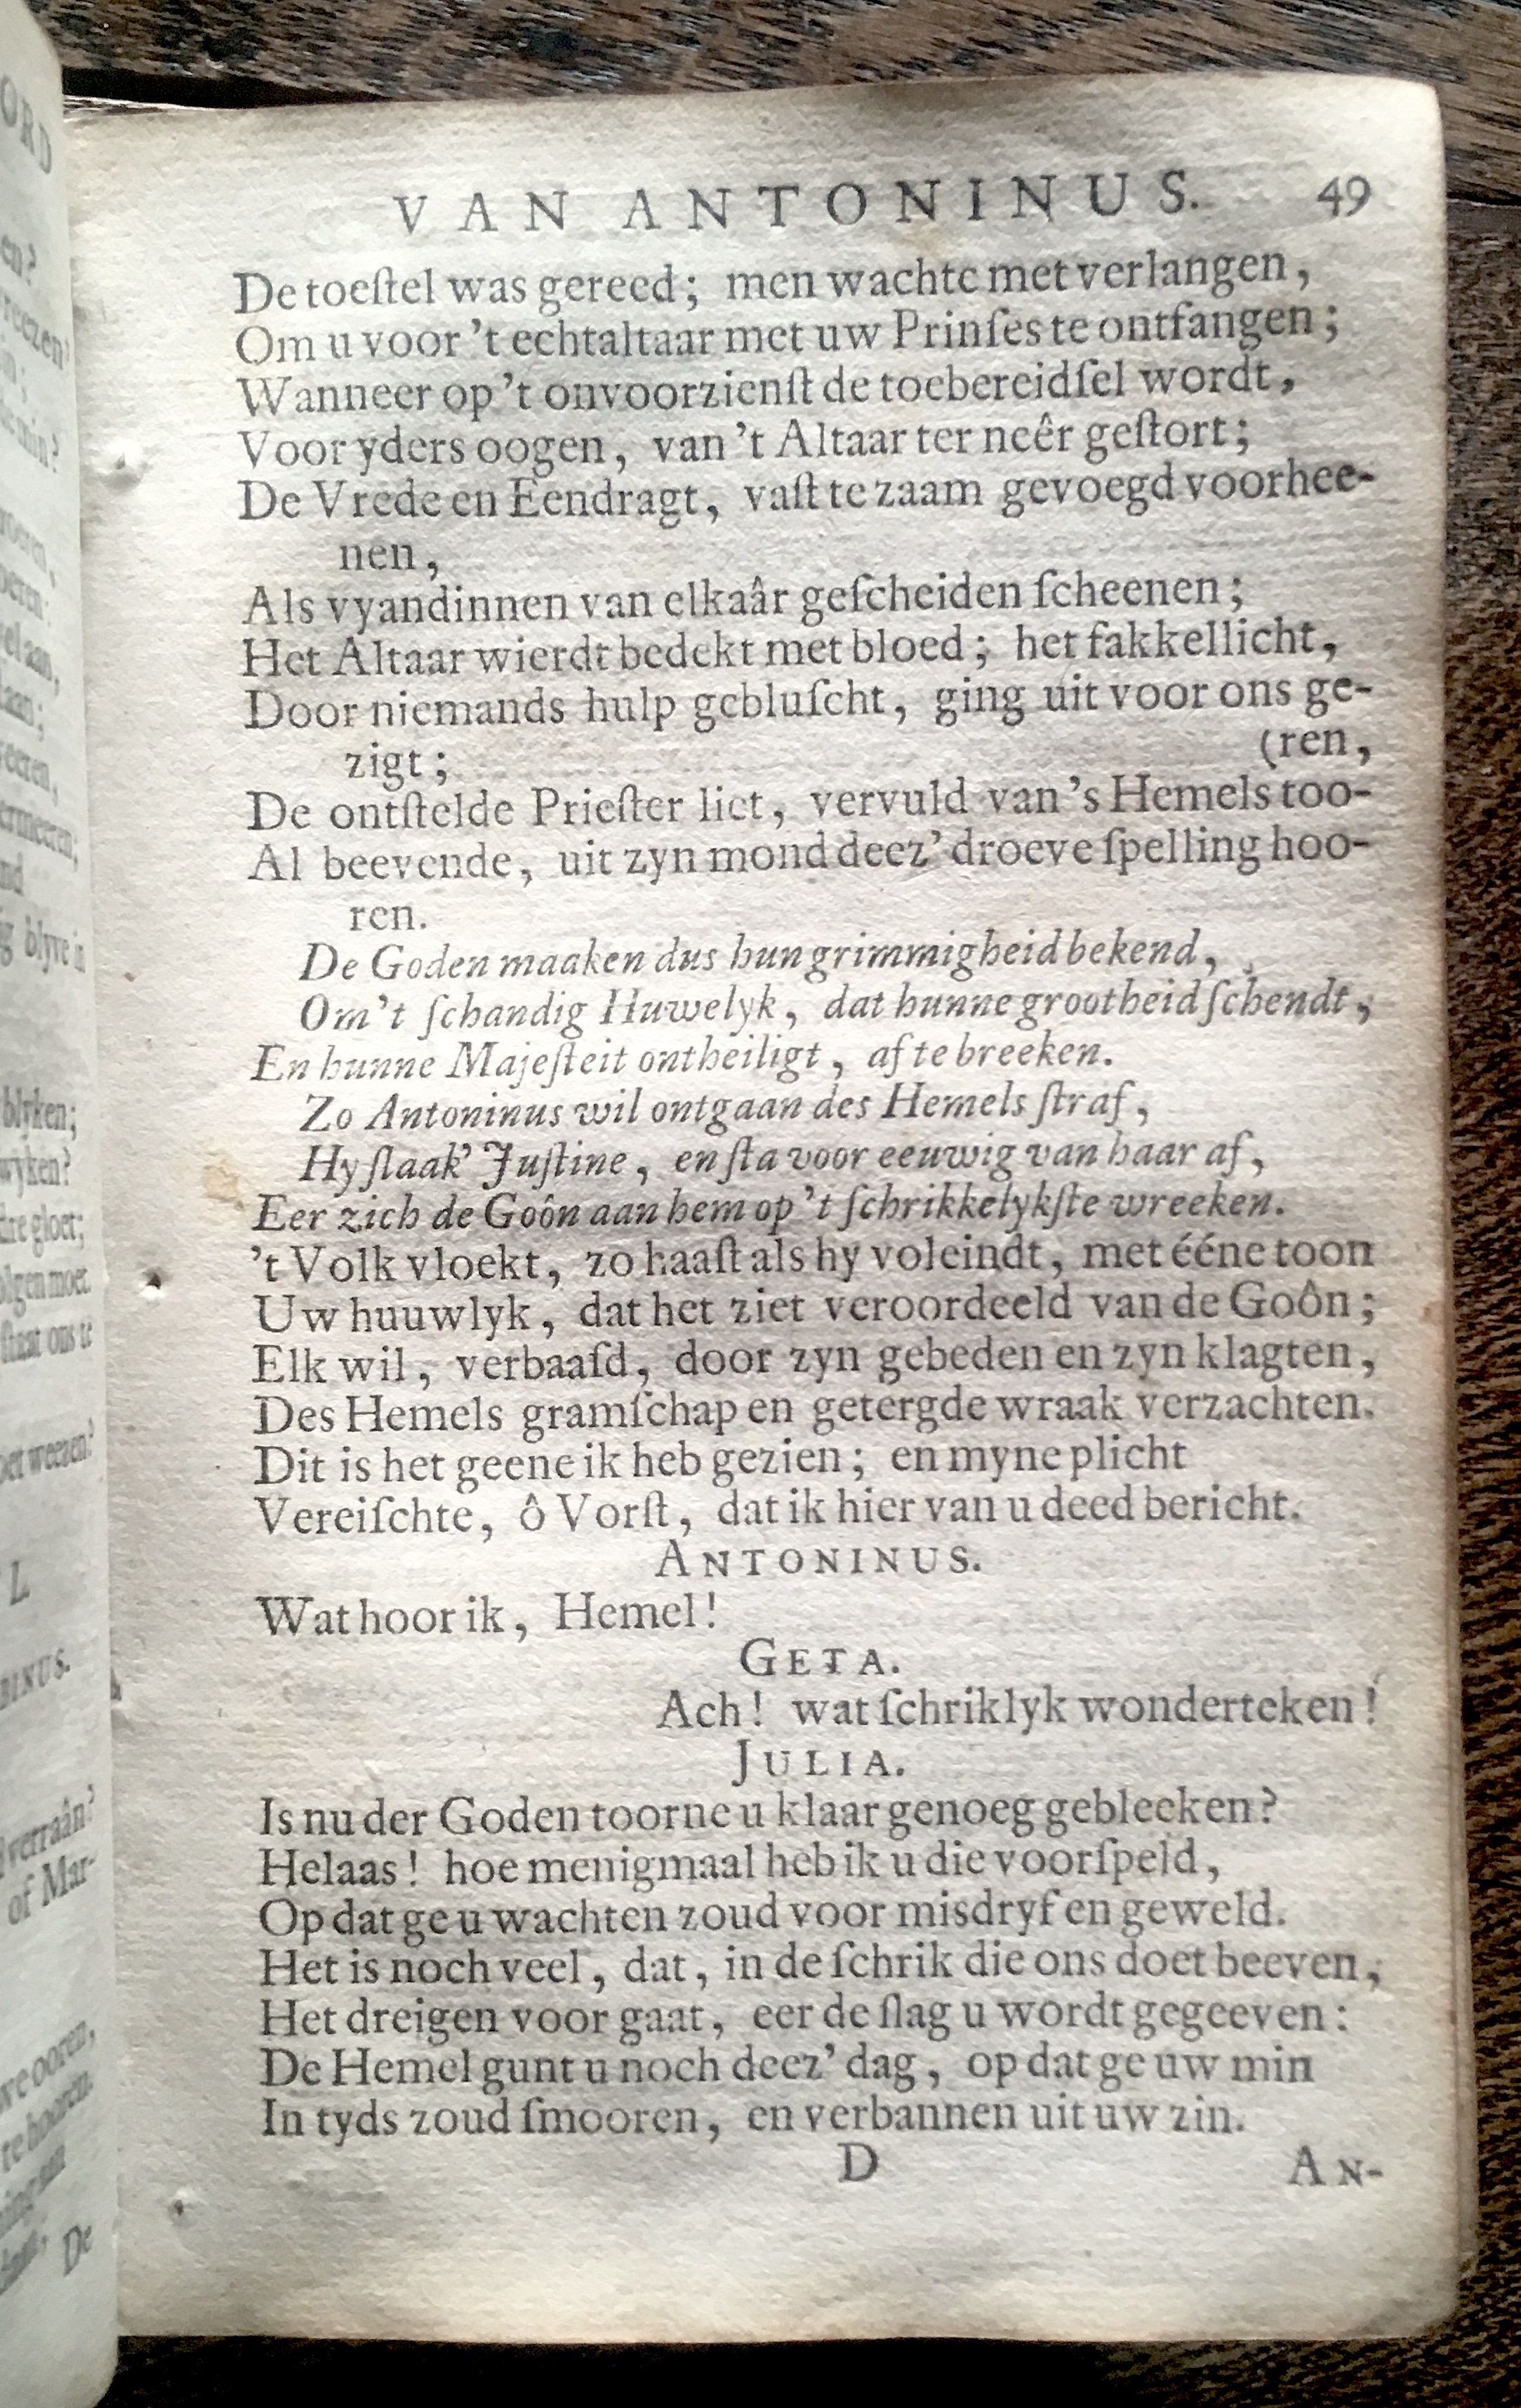 VAN ANTONINUS. 49
De toeſtel was gereed; men wachte met verlangen,
Om u voor 't echtaltaar met uw Prinſes te ontfangen;
Wanneer op 't onvoorzienſt de toebereidſel wordt,
Voor yders oogen, van 't Altaar ter neêr geſtort;
De Vrede en Eendragt, vaſt te zaam gevoegd voorhee-
nen,
Als vyandinnen van elkaâr geſcheiden ſcheenen;
Het Altaar wierdt bedekt met bloed; het fakkellicht,
Door niemands hulp gebluſcht, ging uit voor ons ge-
zigt; (ren,
De ontſtelde Prieſter liet, vervuld van 's Hemels too-
Al beevende, uit zyn mond deez' droeve ſpelling hoo-
ren.
De Goden maaken dus hun grimmigheid bekend,
Om 't ſchandig Huwelyk, dat hunne grootheid ſchendt,
En hunne Majeſteit ontheiligt, af te breeken.
Zo Antoninus wil ontgaan des Hemels ſtraf,
Hy ſlaak' Juſtine, en ſta voor eeuwig van haar af,
Eer zich de Goôn aan hem op 't ſchrikkelykſte wreeken.
't Volk vloekt, zo haaſt als hy voleindt, met ééne toon
Uw huuwlyk, dat het ziet veroordeeld van de Goôn;
Elk wil, verbaaſd, door zyn gebeden en zyn klagten,
Des Hemels gramſchap en getergde wraak verzachten.
Dit is het geene ik heb gezien; en myne plicht
Vereiſchte, ô Vorſt, dat ik hier van u deed bericht.
ANTONINUS.
Wat hoor ik, Hemel!
GETA.
Ach! wat ſchriklyk wonderteken!
JULIA.
Is nu der Goden toorne u klaar genoeg gebleeken?
Helaas! hoe menigmaal heb ik u die voorſpeld,
Op dat ge u wachten zoud voor misdryf en geweld.
Het is noch veel, dat, in de ſchrik die ons doet beeven,
Het dreigen voor gaat, eer de ſlag u wordt gegeeven:
De Hemel gunt u noch deez' dag, op dat ge uw min
In tyds zoud ſmooren, en verbannen uit uw zin.
D AN-